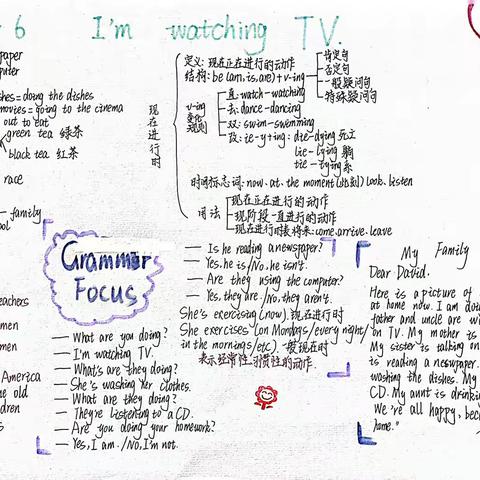 6 I'm watching TV.
paper
puter
shes=doing the dishes
movies=going to the cinema
out to eat
green tea 绿茶
black tea 红茶
race
family
ool
现在进行时
定义: 现在正在进行的动作
结构: be (am, is, are) + v-ing
肯定句
否定句
一般疑问句
特殊疑问句
v-ing
变化
规则
直: watch-watching
去: dance-dancing
双: swim-swimming
改: ie-y+ing: die-dying 死亡
lie-lying 躺
tie-tying 系
时间标志词: now. at the moment (此刻) look. listen
用法
现在正在进行的动作
现阶段一直进行的动作
现在进行时表将来: come. arrive. leave
Grammar
Focus
— Is he reading a newspaper?
— Yes, he is/No, he isn't.
— Are they using the computer?
— Yes, they are. /No, they aren't.
She's exercising (now). 现在进行时
She exercises (on Mondays/every night/
in the mornings/etc) 一般现在时
表示经常性、习惯性的动作.
eachers
men
men
America
e old
dren
s
— What are you doing?
— I'm watching TV.
— What's are they doing?
— She's washing her clothes.
— What are they doing?
— They're listening to a CD.
— Are you doing your homework?
— Yes, I am. /No, I'm not.
My Family
Dear David.
Here is a picture of
at home now. I am doi
father and uncle are w
on TV. My mother is
My sister is talking on
is reading a newspaper.
washing the dishes. My
CD. My aunt is drinkin
We're all happy, bec
home."